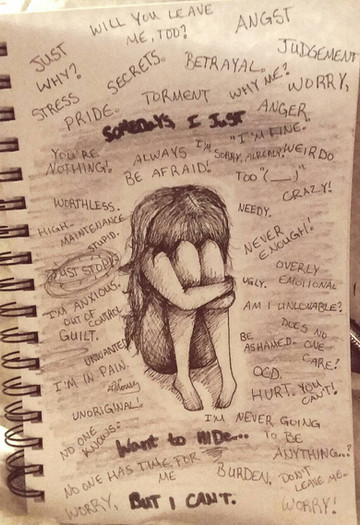 WILL YOU LEAVE
ME, TOO?
ANGST
JUST
WHY?
SECRETS.
BETRAYAL.
JUDGEMENT
STRESS
PRIDE.
TORMENT
WHY ME?
WORRY,
ANGER
SOMEDAYS, I JUST
"I'M FINE."
YOU'RE
NOTHING!
ALWAYS
BE AFRAID!
I'M
SORRY, ALREADY!
WEIRDO
TOO "(___)"
CRAZY!
WORTHLESS.
NEEDY.
HIGH-
MAINTENANCE
STUPID.
NEVER
ENOUGH!
JUST STOP!
OVERLY
EMOTIONAL
UGLY.
I'M ANXIOUS.
OUT OF
CONTROL
AM I UNLOVABLE?
GUILT.
DOES NO
ONE
CARE?
BE
ASHAMED.
UNWANTED
I'M IN PAIN
OCD
HURT. YOU
CAN'T!
UNORIGINAL!
I'M NEVER GOING
TO BE
ANYTHING...?
NO ONE
KNOWS.
WANT to HIDE...
NO ONE HAS TIME FOR
ME
BURDEN.
DON'T
LEAVE ME.
WORRY,
BUT I CAN'T.
WORRY!